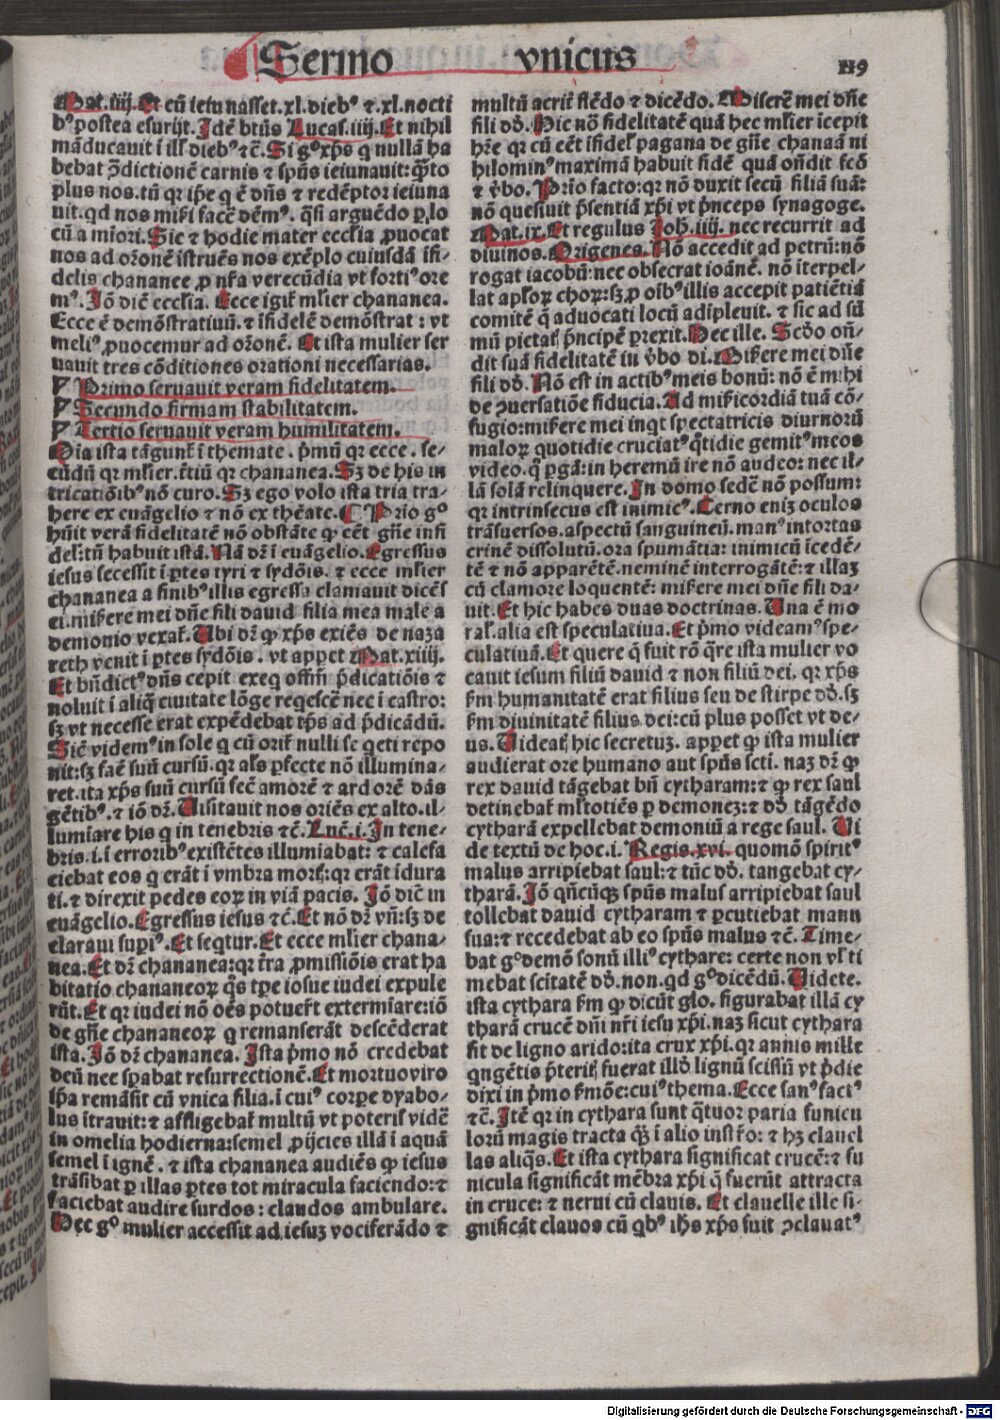 Sermo vnicus 119
Mat. iiij. Et cū ieiunasset .xl. dieb⁹ ⁊ .xl. nocti
b⁹ postea esurijt. Idē btūs Lucas. iiij. Et nihil
māducauit ī ill dieb⁹ ⁊c̄. Si g° xp̄s q nullā ha
debat p̄dictionē carnis ⁊ sp̄us ieiunauit: q̄to
plus nos. tū qr ip̄e q ē dn̄s ⁊ redēptor ieiuna
uit. qd nos miſi facē dēm⁹. q̄si arguēdo ꝑ lo
cū a mīori. Sic ⁊ hodie mater ecclīa ꝓuocat
nos ad orōnē īstruēs nos exēplo cuiusdā īfi-
delis chananee ꝓ nr̄a verecūdia vt forti⁹ ore
m⁹. Iō dic̄ ecclīa. Ecce igit̃ ml̄ier chananea.
Ecce ē demōstratiuū. ⁊ īfidelē demōstrat: vt
meli⁹ ꝓuocemur ad orōnē. Et ista mulier ser
uauit tres cōditiones orationi necessarias.
¶ Primo seruauit veram fidelitatem.
¶ Secundo firmam stabilitatem.
¶ Tertio seruauit veram humilitatem.
Oīa ista tāgunt̃ ī themate. p̄mū qr ecce. se-
cūdū qr ml̄ier. t̄tiū qr chananea. Sꝫ de his in
tricatiōib⁹ nō curo. Sꝫ ego volo ista tria tra-
here ex euāgelio ⁊ nō ex thēate. ¶ Prīo g°
hūit verā fidelitatē nō obstāte ꝙ cēt̃ gn̄e infi
del: tū habuit istā. Nā dr̄ ī euāgelio. Egressus
iesus secessit ī ꝑtes tyri ⁊ sydōis. ⁊ ecce ml̄ier
chananea a finib⁹ illis egressa clamauit dicēs
ei. miserere mei dn̄e fili dauid filia mea male a
demonio vexat̃. Ubi dr̄ ꝙ xp̄s exiēs de naza
reth venit ī ꝑtes sydōis. vt appet Mat. xiiij.
Et bn̄dict⁹ dn̄s cepit exeq offm̄ p̄dicatiōis ⁊
noluit ī aliq̄ ciuitate lōge reqescē nec ī castro:
sꝫ vt necesse erat expēdebat tp̄s ad p̄dicādū.
Sic̄ videm⁹ in sole q cū orit̃ nulli se qeti repo
nit: sꝫ fac̄ suū cursū. qr als ꝑfecte nō illumina-
ret. ita xp̄s suū cursū fec̄ amorē ⁊ ardorē dās
gētib⁹. ⁊ iō dr̄. Uisitauit nos oriēs ex alto. il-
lumīare his q in tenebris ⁊c̄. Luc̄. i. In tene-
bris. i. ī errorib⁹ existētes illumiabat: ⁊ calefa
ciebat eos q erāt ī vmbra mort: qr erāt īdura
ti. ⁊ direxit pedes eoꝝ in viā pacis. Iō dic̄ in
euāgelio. Egressus iesus ⁊c̄. Et nō dr̄ vn̄: sꝫ de
claraui supi⁹. Et seqtur. Et ecce ml̄ier chana-
nea. Et dr̄ chananea: qr t̄ra ꝓmissiōis erat ha
bitatio chananeoꝝ q̄s tp̄e iosue iudei expule
rūt. Et qr iudei nō oēs potuert̃ extermīare: iō
de gn̄e chananeoꝝ q remanserāt descēderat
ista. Iō dr̄ chananea. Ista p̄mo nō credebat
deū nec sꝑabat resurrectionē. Et mortuo viro
ip̄a remāsit cū vnica filia. ī cui⁹ corꝑe dyabo-
lus ītrauit: ⁊ affligebat̃ multū vt poteris vidē
in omelia hodierna: semel ꝓijcies illā ī aquā
semel ī ignē. ⁊ ista chananea audiēs ꝙ iesus
trāsibat ꝑ illas ꝑtes tot miracula faciendo: ⁊
faciebat audire surdos: claudos ambulare.
Hec g° mulier accessit ad iesuꝫ vociferādo ⁊
multū acrit̃ flēdo ⁊ dicēdo. Miserē mei dn̄e
fili dd̄. Hic nō fidelitatē quā hec ml̄ier īcepit
hr̄e qr cū cēt̃ ifidel pagana de gn̄e chanaā ni
hilomin⁹ maximā habuit fidē quā oñdit fc̄o
⁊ v̄bo. Prīo facto: qr nō duxit secū filiā suā:
nō quesiuit p̄sentiā xp̄i vt p̄nceps synagoge.
Mat. ix. Et regulus Joh. iiij. nec recurrit ad
diuinos. Origenes. Nō accedit ad petrū: nō
rogat iacobū: nec obsecrat ioānē. nō īterpel-
lat apl̄oꝝ choꝝ: sꝫ ꝓ oīb⁹ illis accepit patiētiā
comitē q̄ aduocati locū adipleuit. ⁊ sic ad sū
mū pietat̃ p̄ncipē ꝑrexit. Hec ille. Scd̄o oñ-
dit suā fidelitatē in v̄bo di. Misere mei dn̄e
fili dd̄. Nō est in actib⁹ meis bonū: nō ē mihi
de ꝯuersatiōe fiducia. Ad mīsericordiā tuā cō-
fugio: misere mei inqt spectatricis diurnorū
maloꝝ quotidie cruciat⁹ q̄tidie gemit⁹ meos
video. q̄ ꝑgā: in heremū ire nō audeo: nec il-
lā solā relinquere. In domo sedē nō possum:
qr intrinsecus est inimic⁹. Cerno eniꝫ oculos
trāsuersos. aspectū sanguineū. man⁹ intortas
crinē dissolutū. ora spumātia: inimicū īcedē-
tē ⁊ nō apparētē. neminē interrogātē: ⁊ illaꝫ
cū clamore loquentē: misere mei dn̄e fili da-
uit. Et hic habes duas doctrinas. Una ē mo
ral. alia est speculatiua. Et p̄mo videam⁹ spe-
culatiuā. Et quere q̄ fuit rō q̄re ista mulier vo
cauit iesum filiū dauid ⁊ non filiū dei. qr xp̄s
ẜm humanitatē erat filius seu de stirpe dd̄. sꝫ
ẜm diuinitatē filius dei: cū plus posset vt de-
us. Uideat̃ hic secretuꝫ. appet ꝙ ista mulier
audierat ore humano aut sp̄us scti. naꝫ dr̄ ꝙ
rex dauid tāgebat bn̄ cytharam: ⁊ ꝙ rex saul
detinebat̃ ml̄totiēs ꝑ demoneꝫ: ⁊ dd̄ tāgēdo
cytharā expellebat demoniū a rege saul. Ui
de textū de hoc. i. Regis. xvi. quomō spirit⁹
malus arripiebat saul: ⁊ tūc dd̄. tangebat cy-
tharā. Iō qn̄cūqꝫ sp̄us malus arripiebat saul
tollebat dauid cytharam ⁊ ꝑcutiebat manu
sua: ⁊ recedebat ab eo sp̄us malus ⁊c̄. Time-
bat g° demō sonū illi⁹ cythare: certe non vl ti
mebat scitatē dd̄. non. qd g° dicēdū. Uidete.
ista cythara ẜm ꝙ dicūt glo. figurabat illā cy
tharā crucē dn̄i nr̄i iesu xp̄i. naꝫ sicut cythara
fit de ligno arido: ita crux xp̄i. qr annis mille
qngētis p̄terit̃ fuerat illd̄ lignū scissū vt p̄die
dixi in p̄mo ẜmōe: cui⁹ thema. Ecce san⁹ fact⁹
⁊c̄. Itē qr in cythara sunt q̄tuor paria funicu
lorū magis tracta q̄ꝫ ī alio instr̄o: ⁊ hꝫ clauel
las aliq̄s. Et ista cythara significat crucē: ⁊ fu
nicula significāt mēbra xp̄i q̄ fuerūt attracta
in cruce: ⁊ nerui cū clauis. Et clauelle ille si-
gnificāt clauos cū qb⁹ ihs xp̄s fuit ꝯclauat⁹
Digitalisierung gefördert durch die Deutsche Forschungsgemeinschaft - DFG